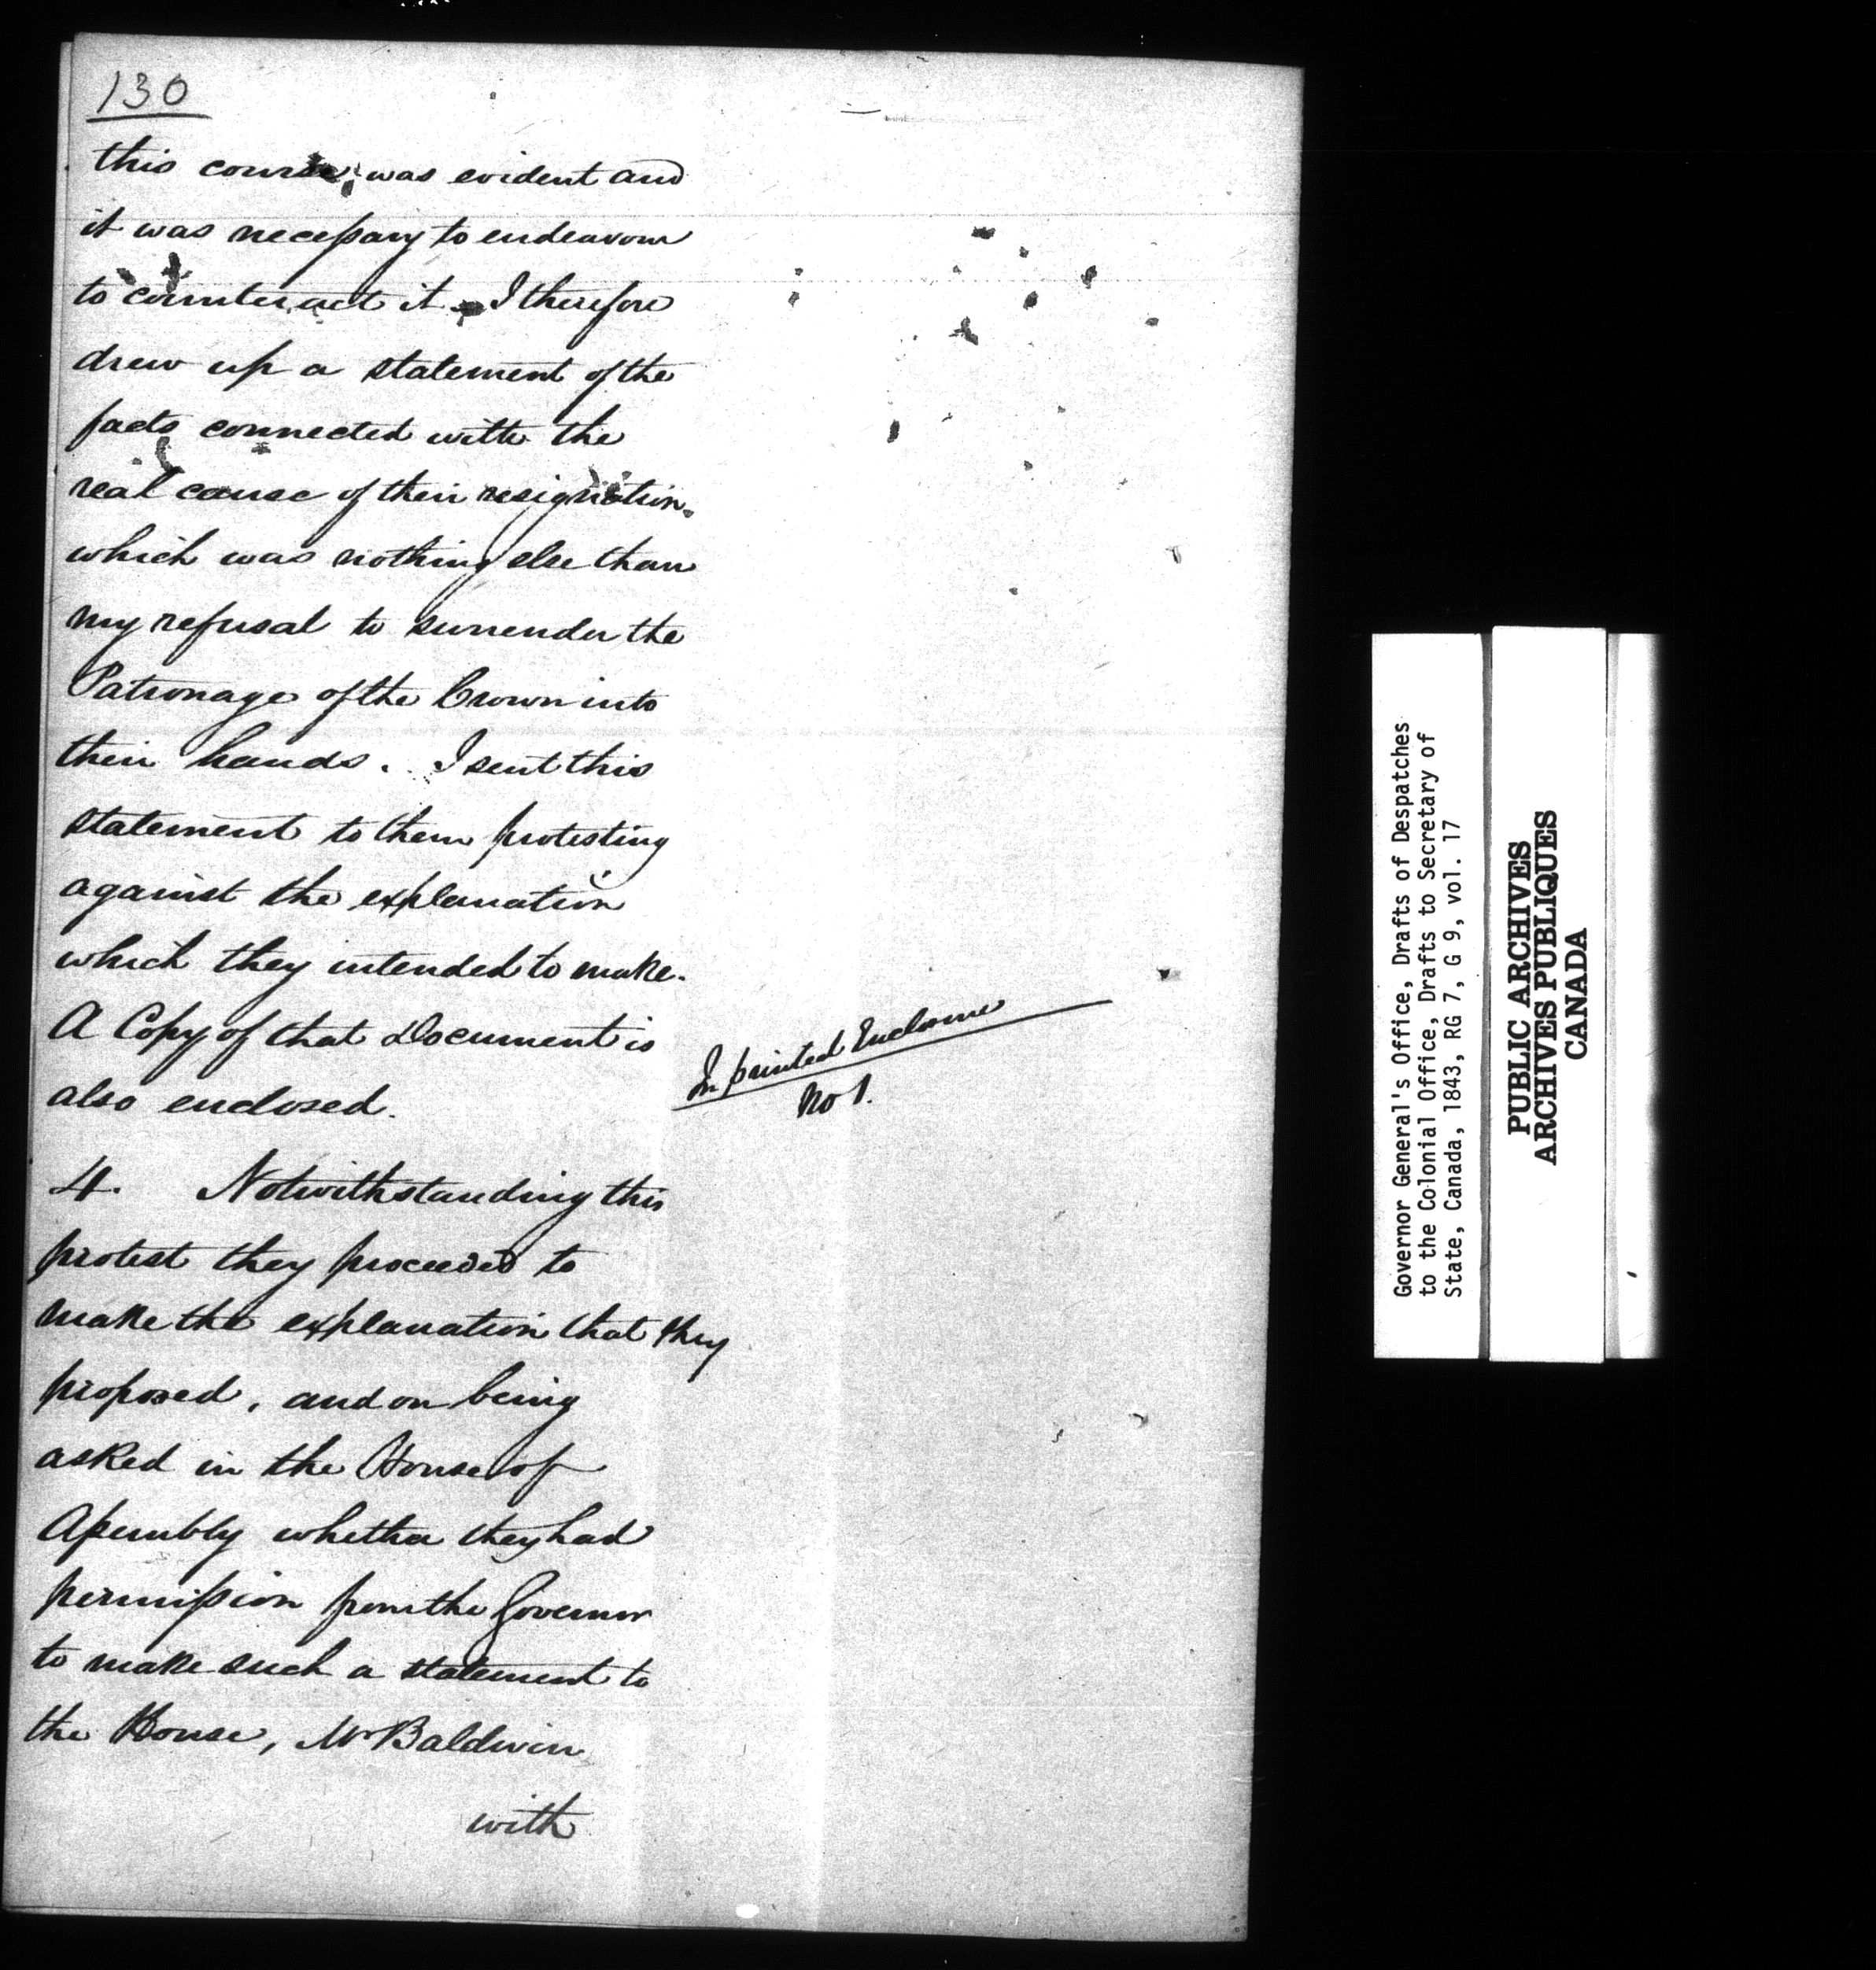 130
this course was evident and
it was necessary to endeavour
to counteract it. I therefore
drew up a statement of the
facts connected with the
real cause of their resignation
which was nothing else than
my refusal to surrender the
Patronage of the Crown into
their hands. I sent this
statement to them protesting
against the explanation
which they intended to make.
A Copy of that Document is
also enclosed.
In printed Enclosure
No 1.
4. Notwithstanding this
protest they proceeded to
make the explanation that they
proposed, and on being
asked in the House of
Assembly whether they had
permission from the Governor
to make such a statement to
the House, Mr Baldwin
with
Governor General's Office, Drafts of Despatches
to the Colonial Office, Drafts to Secretary of
State, Canada, 1843, RG 7, G 9, vol. 17
PUBLIC ARCHIVES
ARCHIVES PUBLIQUES
CANADA